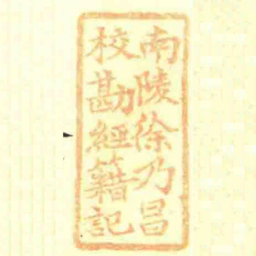 南陵徐乃昌
校勘經籍記